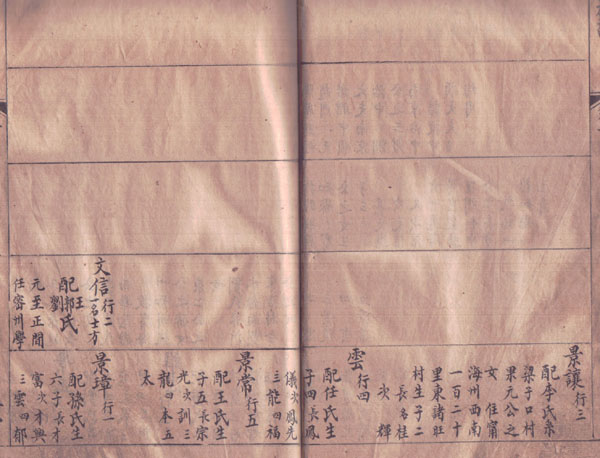 景讓行三
配李氏系
梁子口村
果元公之
女 住甯
海州西南
一百二十
里東諸旺
村生子二
長名桂
次輝
雲行四
配任氏生
子四長鳳
儀次鳳先
三龍四福
景常行五
配王氏生
子五長宗
光次訓三
龍四本五
太
文信行二一名士方
配王郭劉氏
元至正間
任密州學
景璋行一
配孫氏生
六子長才
富次才興
三雲四郁